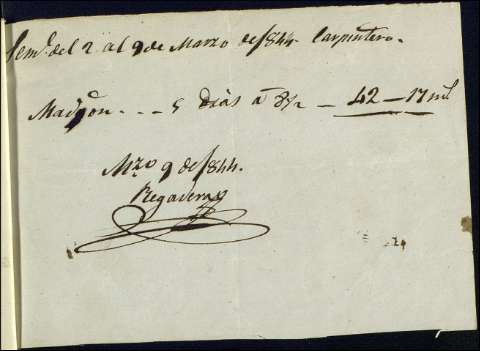 Semª. del 2 al 9 de Marzo de 1844. Carpintero.
5 dias a 8½ — 42 — 17 ml
Mzo 9 de 1844.
Regadera